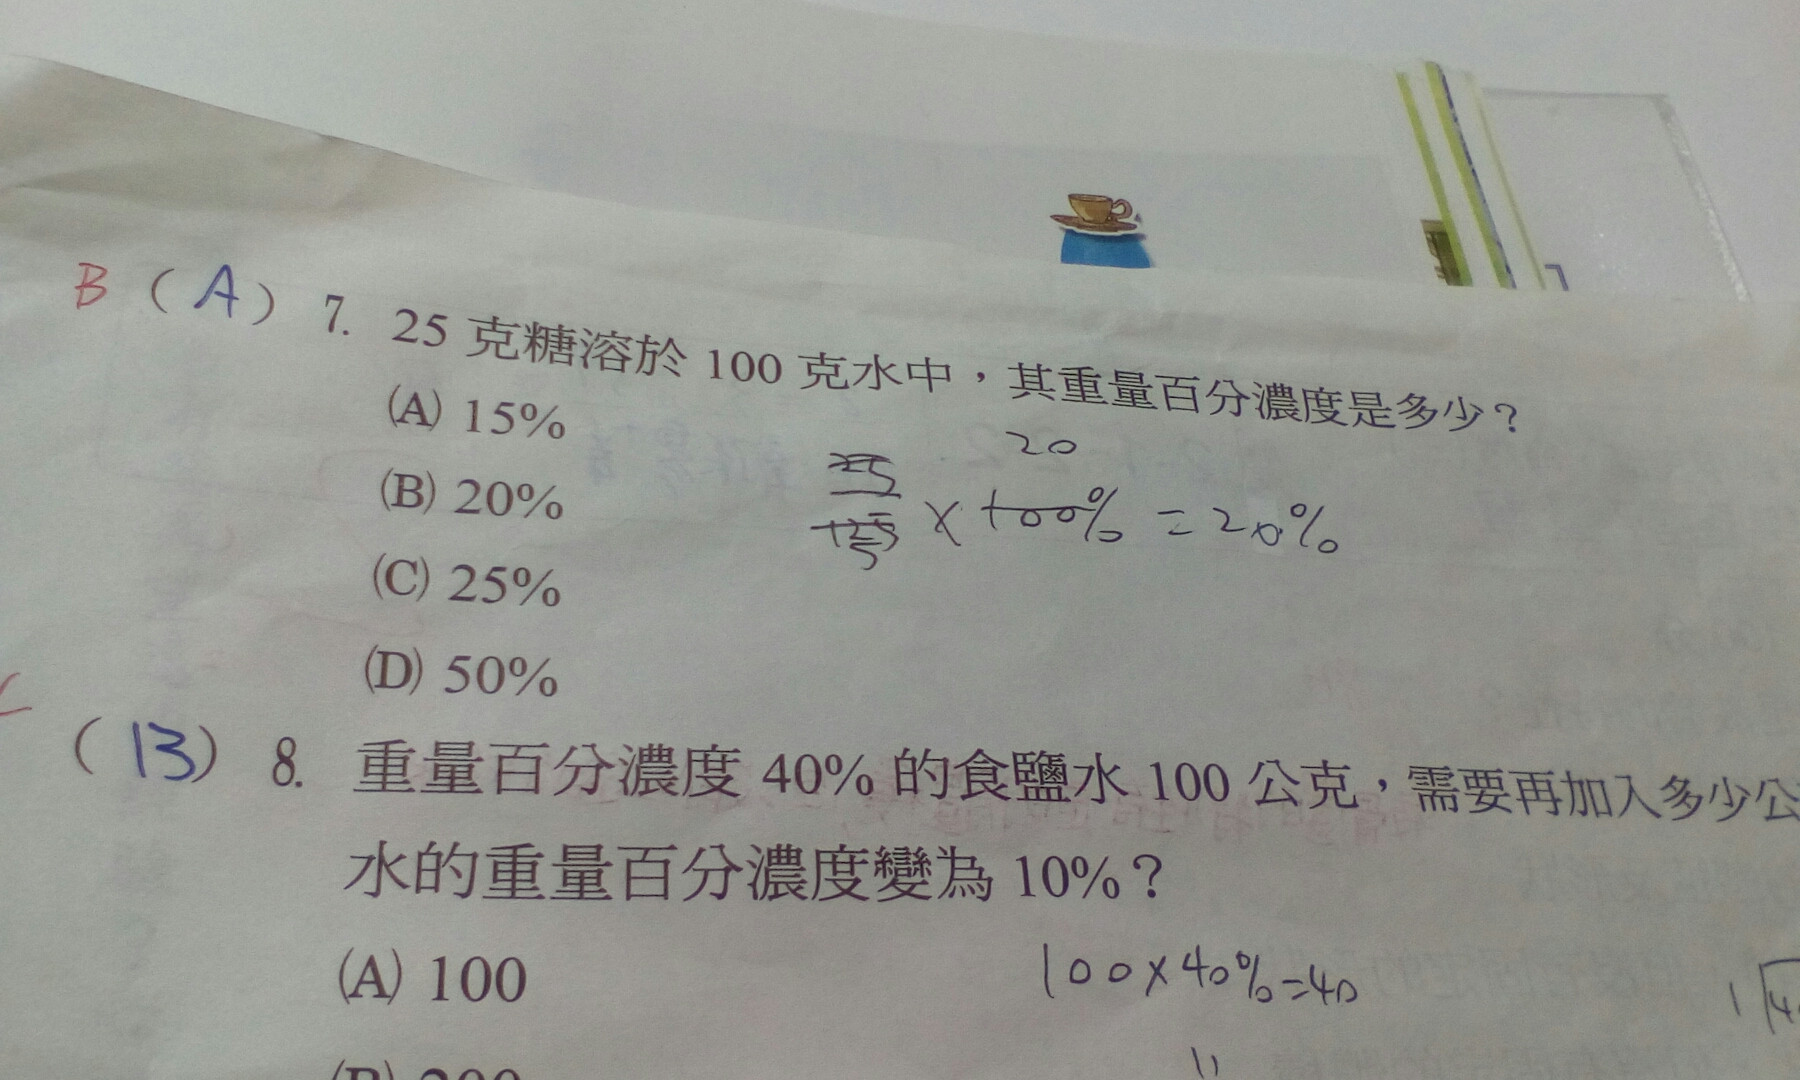 B ( A ) 7. 25 克糖溶於 100 克水中，其重量百分濃度是多少？
(A) 15%
(B) 20%
(C) 25%
(D) 50%
20
25
125 × 100% = 20%
5
( B ) 8. 重量百分濃度 40% 的食鹽水 100 公克，需要再加入多少公
水的重量百分濃度變為 10%？
(A) 100
100×40%=40
(B) 200